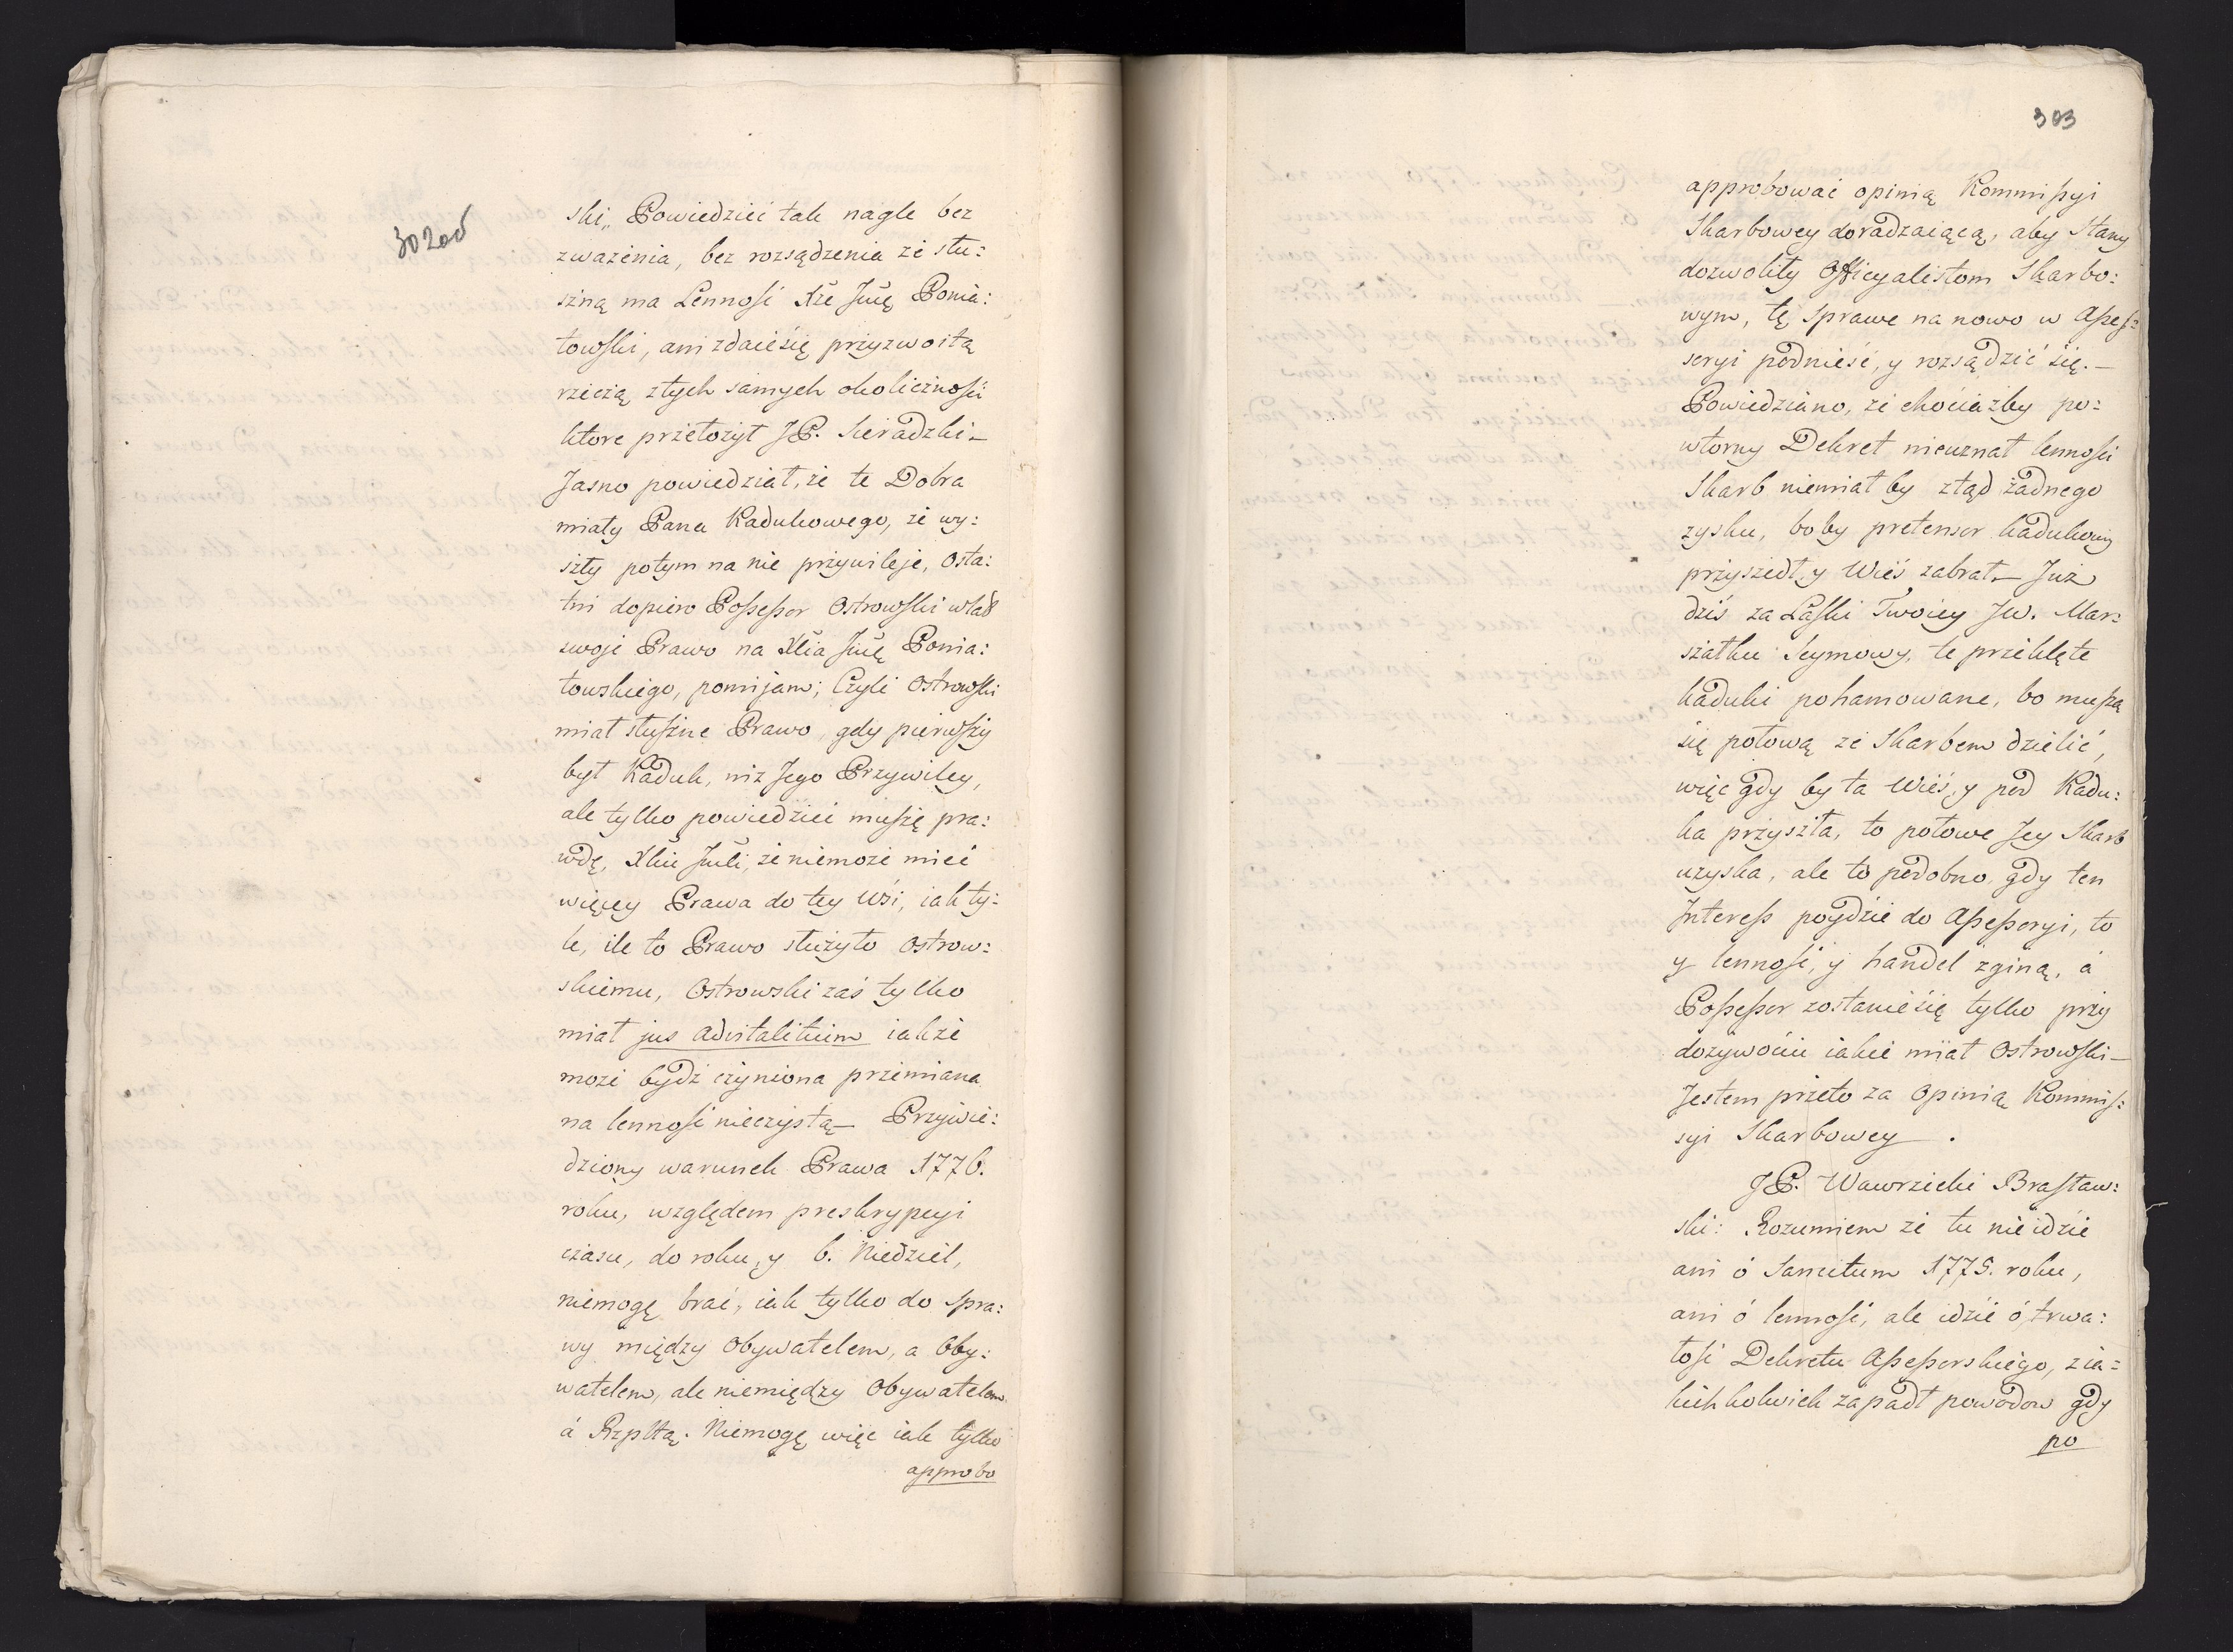 302od
ski„ Powiedzieć tak nagle bez
zwazenia, bez rozsądzenia że słu:
szną ma Lenność Xże Jmć Ponia:
towski, ani zdaie się przyzwoitą
rzeczą z tych samych okoliczności
ktore przełożył JP. Sieradzki –
Jasno powiedział, że te Dobra
miały Pana Kadukowego, że wy:
szły potym na nie przywileje, Osta:
tni dopiero Possessor Ostrowski wlał
swoje Prawo na Xcia Jmć Ponia:
towskiego, pomijam; Czyli Ostrowski
miał słuszne Prawo, gdy pierwszy
był Kaduk, niz Jego Przywiley,
ale tylko powiedzieć muszę pra:
wdę, Xciu Jmci, że niemoże mieć
więcey Prawa do tey Wsi, iak ty:
le, ile to Prawo służyło Ostrow:
skiemu, Ostrowski zaś tylko
miał jus advitalitium iakże
może bydź czyniona przemiana
na lenność wieczystą – Przywie:
dziony warunek Prawa 1776.
roku, względem preskrypcyi
czasu, do roku, y 6. Niedziel,
niemogę brać, iak tylko do spra:
wy między Obywatelem, a Oby:
watelem, ale niemiędzy Obywatelem
á Rzpltą. Niemogę więc iak tylko
approbo
303
approbować opinią Kommissyi
Skarbowey doradzaiącą, aby Stany
dozwoliły Officyalistom Skarbo:
wym, tę sprawe na nowo w Asses:
soryi podnieść, y rozsądzić się. –
Powiedziano, że chociażby po:
wtorny Dekret nieuznał lennosci
Skarb niemiał by ztąd żadnego
zysku, boby pretensor kadukowy
przyszedł, y Wieś zabrał – Już
dziś za Laski Twoiey JW. Mar:
szałku Seymowy, te przeklęte
kaduki pohamowane, bo muszą
się połową ze Skarbem dzielić,
więc gdy by ta Wieś, y pod Kadu:
ka przyszła, to połowe Jey Skarb
uzyska, ale to podobno gdy ten
Interess poydzie do Assessoryi, to
y lenność, y handel zginą, á
Possessor zostanie się tylko przy
dożywociu iakie miał Ostrowski –
Jestem przeto za Opinią Kommis:
syi Skarbowey .
JP. Wawrzecki Brasław:
ski: Rozumiem że tu nie idzie
ani ó Sancitum 1775. roku,
ani ó lenność, ale idzie ó trwa:
łość Dekretu Assessorskiego, z ia:
kich kolwiek zapadł powodow gdy
po